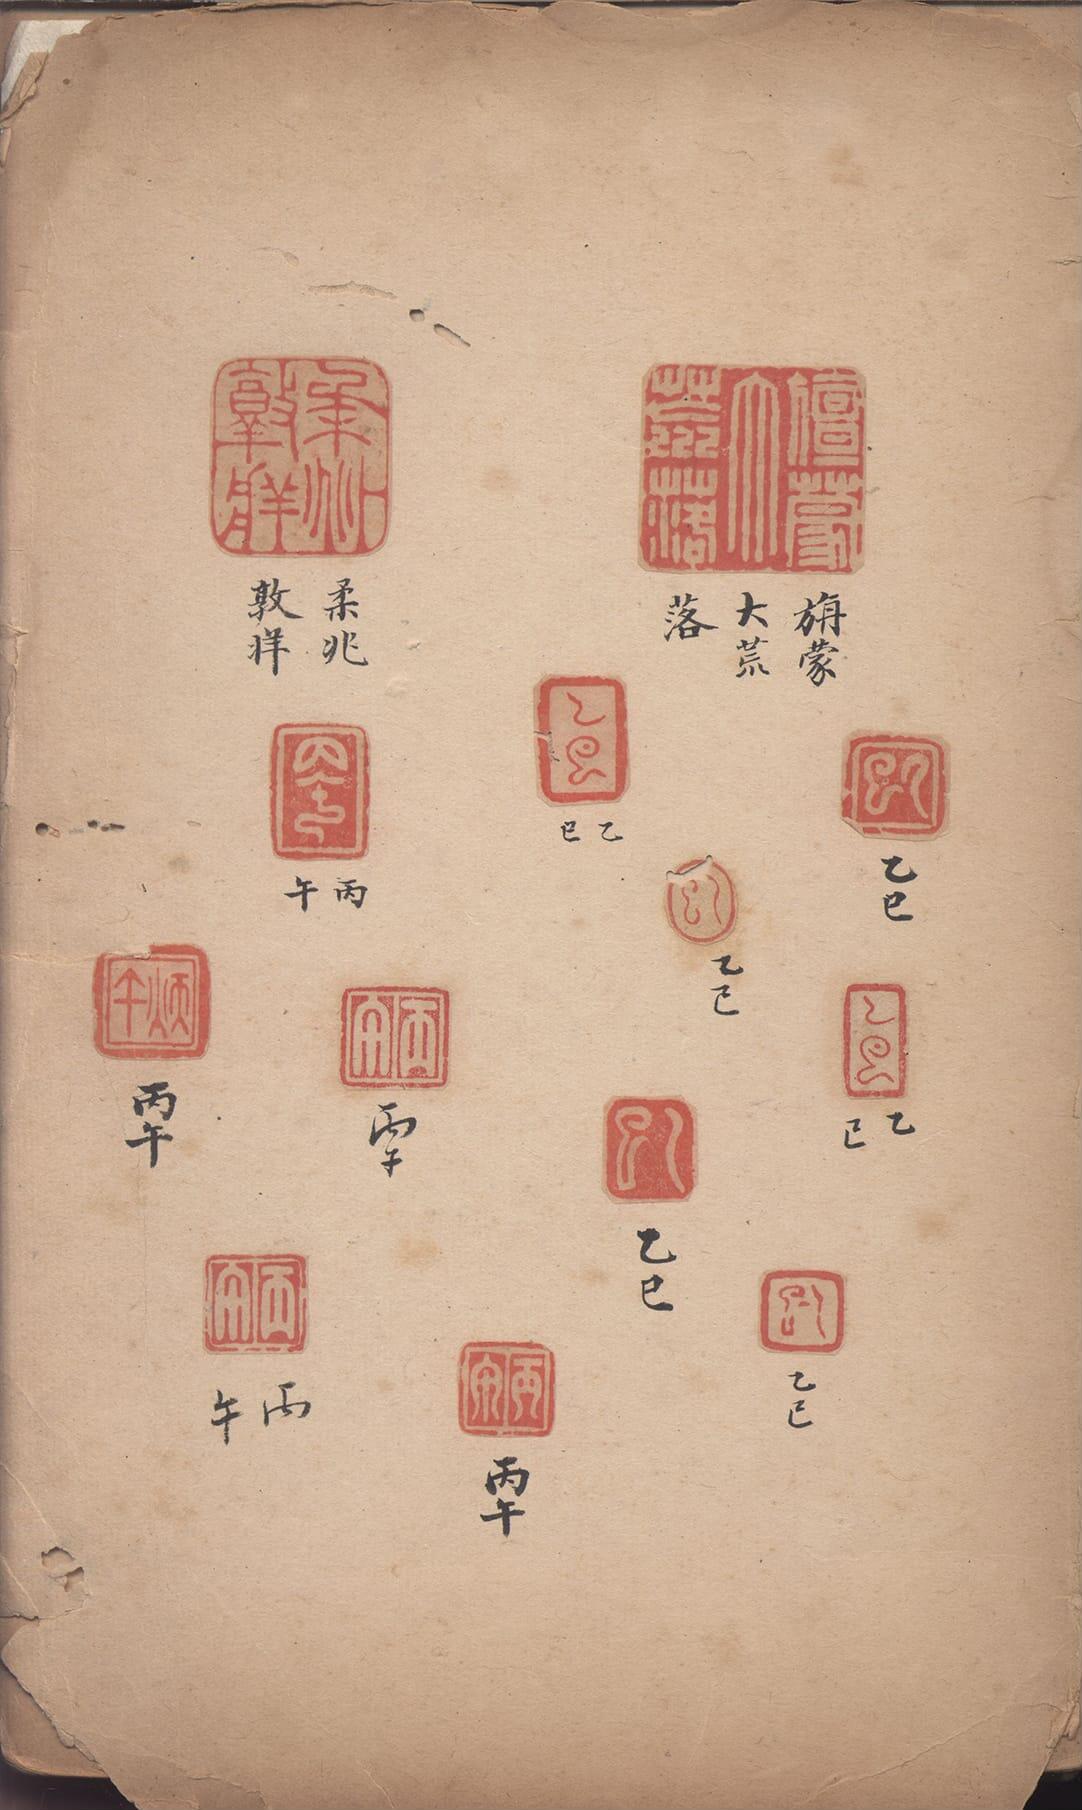 旃蒙
大荒
落
柔兆
敦牂
乙巳
乙巳
丙午
乙巳
乙巳
丙午
丙午
乙巳
乙巳
丙午
丙午